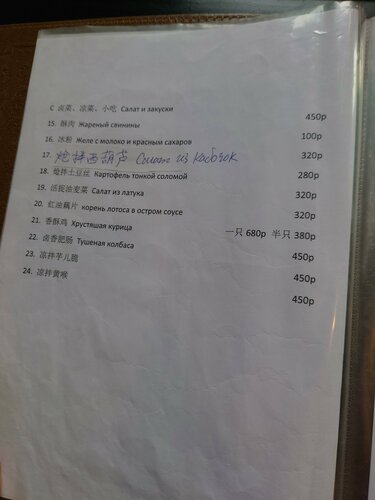 C 卤菜、凉菜、小吃 Салат и закуски
15. 酥肉 Жареный свинины 450р
16. 冰粉 Желе с молоко и красным сахаров 100р
17. 炝拌西葫芦 Салат из кабачок 320р
18. 炝拌土豆丝 Картофель тонкой соломой 280р
19. 活捉油麦菜 Салат из латука 320р
20. 红油藕片 корень лотоса в остром соусе 320р
21. 香酥鸡 Хрустяшая курица 一只 680р 半只 380р
22. 卤香肥肠 Тушеная колбаса 450р
23. 凉拌芋儿脆 450р
24. 凉拌黄喉 450р